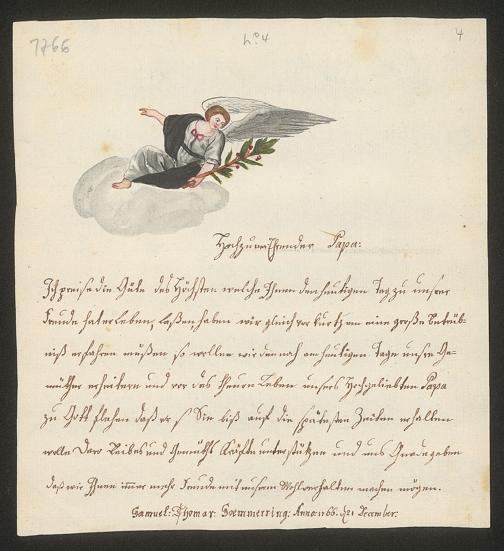 7766
No 4
4
Hochzuverehrender Papa:
Ich preise die Güte des Höchsten welche Ihnen den heutigen Tag zu unsrer
Freude hat erleben laßen, haben wir gleich vor kurtzem eine große Betrüb-
niß erfahren müßen so wollen wir dennoch am heutigen Tage unsre Ge-
müther erheitern und vor das theure Leben unsers Hochgeliebten Papa
zu Gott flehen daß er Sie biß auf die spätesten Zeiten erhalten
wolle Dero Leibes und Gemüths Kräfte unterstützen und uns Gnade geben
daß wir Ihnen immer mehr Freude mit unserm Wohlverhalten machen mögen.
Samuel: Thomas: Soemmerring: Anno 1766. d 21 December: